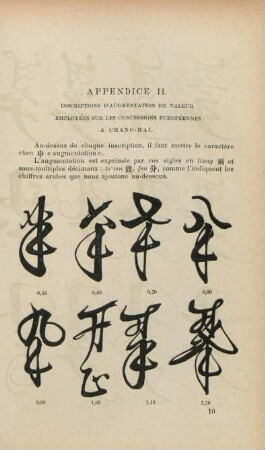 APPENDICE II.
INSCRIPTIONS D'AUGMENTATION DE VALEUR
EMPLOYÉES SUR LES CONCESSIONS EUROPÉENNES
A CHANG-HAI.
Au-dessus de chaque inscription, il faut mettre le caractère
chen 申 « augmentation ».
L'augmentation est exprimée par ces sigles en liang 兩 et
sous-multiples décimaux : ts'ien 錢, fen 分, comme l'indiquent les
chiffres arabes que nous ajoutons au-dessous.
0,50 0,60 0,70 0,80
0,90 1,00 1,10 1,20
10